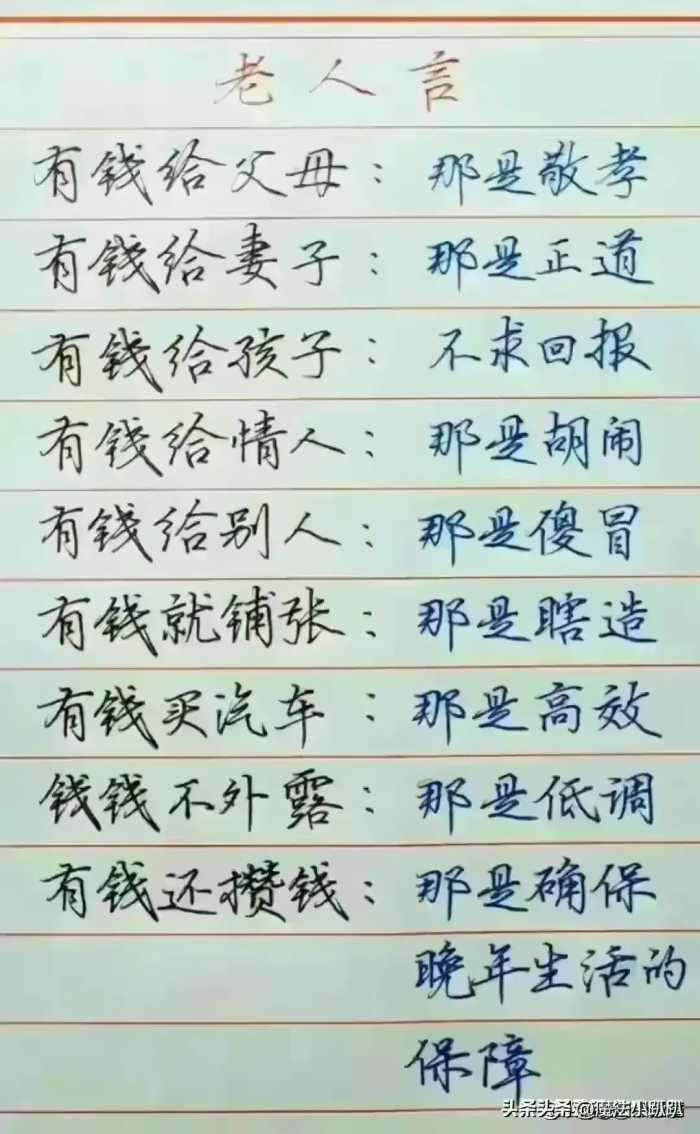 老人言
有钱给父母：那是敬孝
有钱给妻子：那是正道
有钱给孩子：不求回报
有钱给情人：那是胡闹
有钱给别人：那是傻冒
有钱就铺张：那是瞎造
有钱买汽车：那是高效
钱钱不外露：那是低调
有钱还攒钱：那是确保
晚年生活的
保障
头条